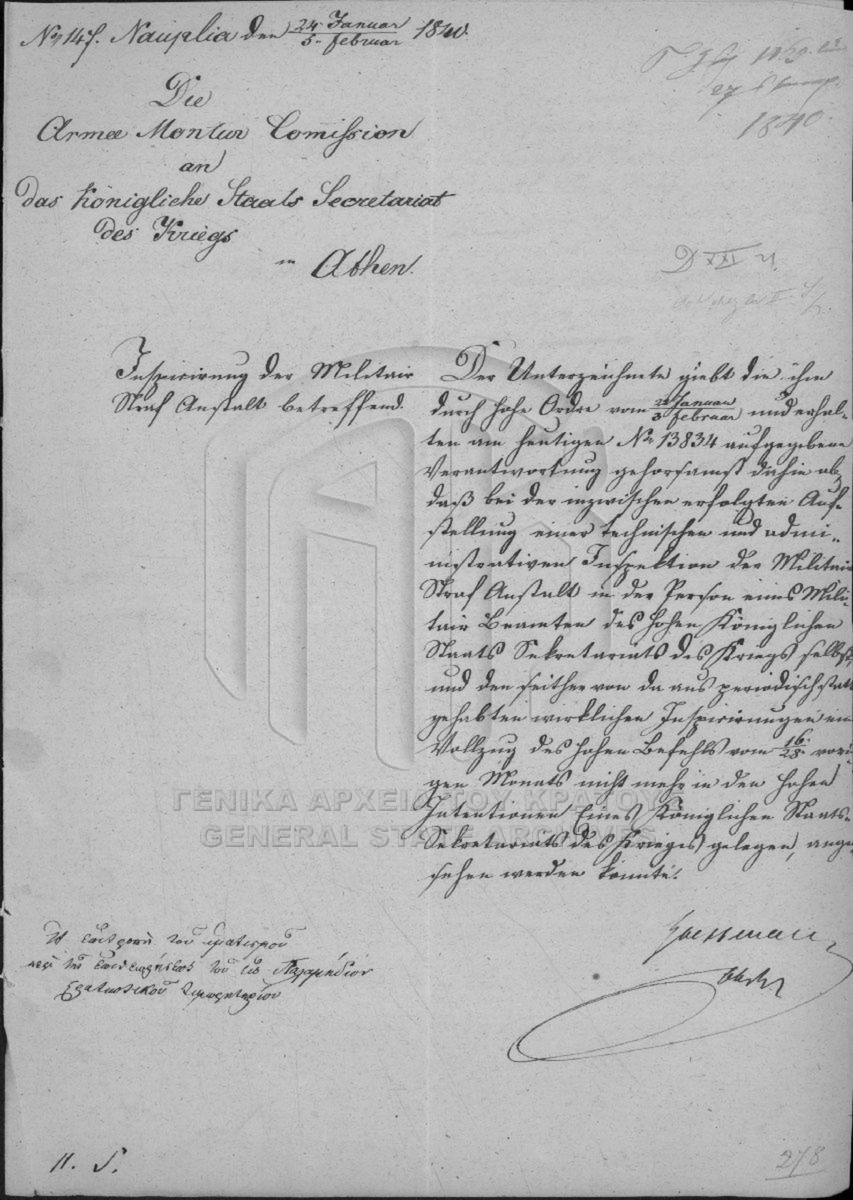 No 147. Nauplia den 24. Januar / 5. Februar 1840.
27
1840.
Die
Armee Montur Comission
an
Das Königliche Staats Secretariat
des Kriegs
in Athen.
D XXI
Inspicirung der Militair
Straf Anstalt betreffend.
Der Unterzeichnete giebt die ihm
durch hohe Ordre vom 22 Januar / 3 Februar und erhal-
ten am heutigen No 13834 aufgegebene
Verantwortung gehorsamst dahin ab,
daß bei der inzwischen erfolgten Auf-
stellung einer technischen und admi-
nistrativen Inspektion der Militair
Straf Anstalt in der Person eines Mili-
tair Beamten des hohen Königlichen
Staats Sekretariats des Kriegs selbst,
und den seither von da aus periodisch statt
gehabten wirklichen Inspicirungen ein
Vollzug des hohen Befehls vom 16/28 vori-
gen Monats nicht mehr in den hohen
Intentionen Eines Königlichen Staats-
Sekretariats des Krieges gelegen, ange-
sehen werden konnte.
Ἡ ἐπιτροπὴ τοῦ ἱματισμοῦ
περὶ τῆς ἐπιθεωρήσεως τοῦ εἰς Παλαμήδιον
στρατιωτικοῦ τιμωρητηρίου
ΓΕΝΙΚΑ ΑΡΧΕΙΑ ΤΟΥ ΚΡΑΤΟΥΣ
GENERAL STATE ARCHIVES
278